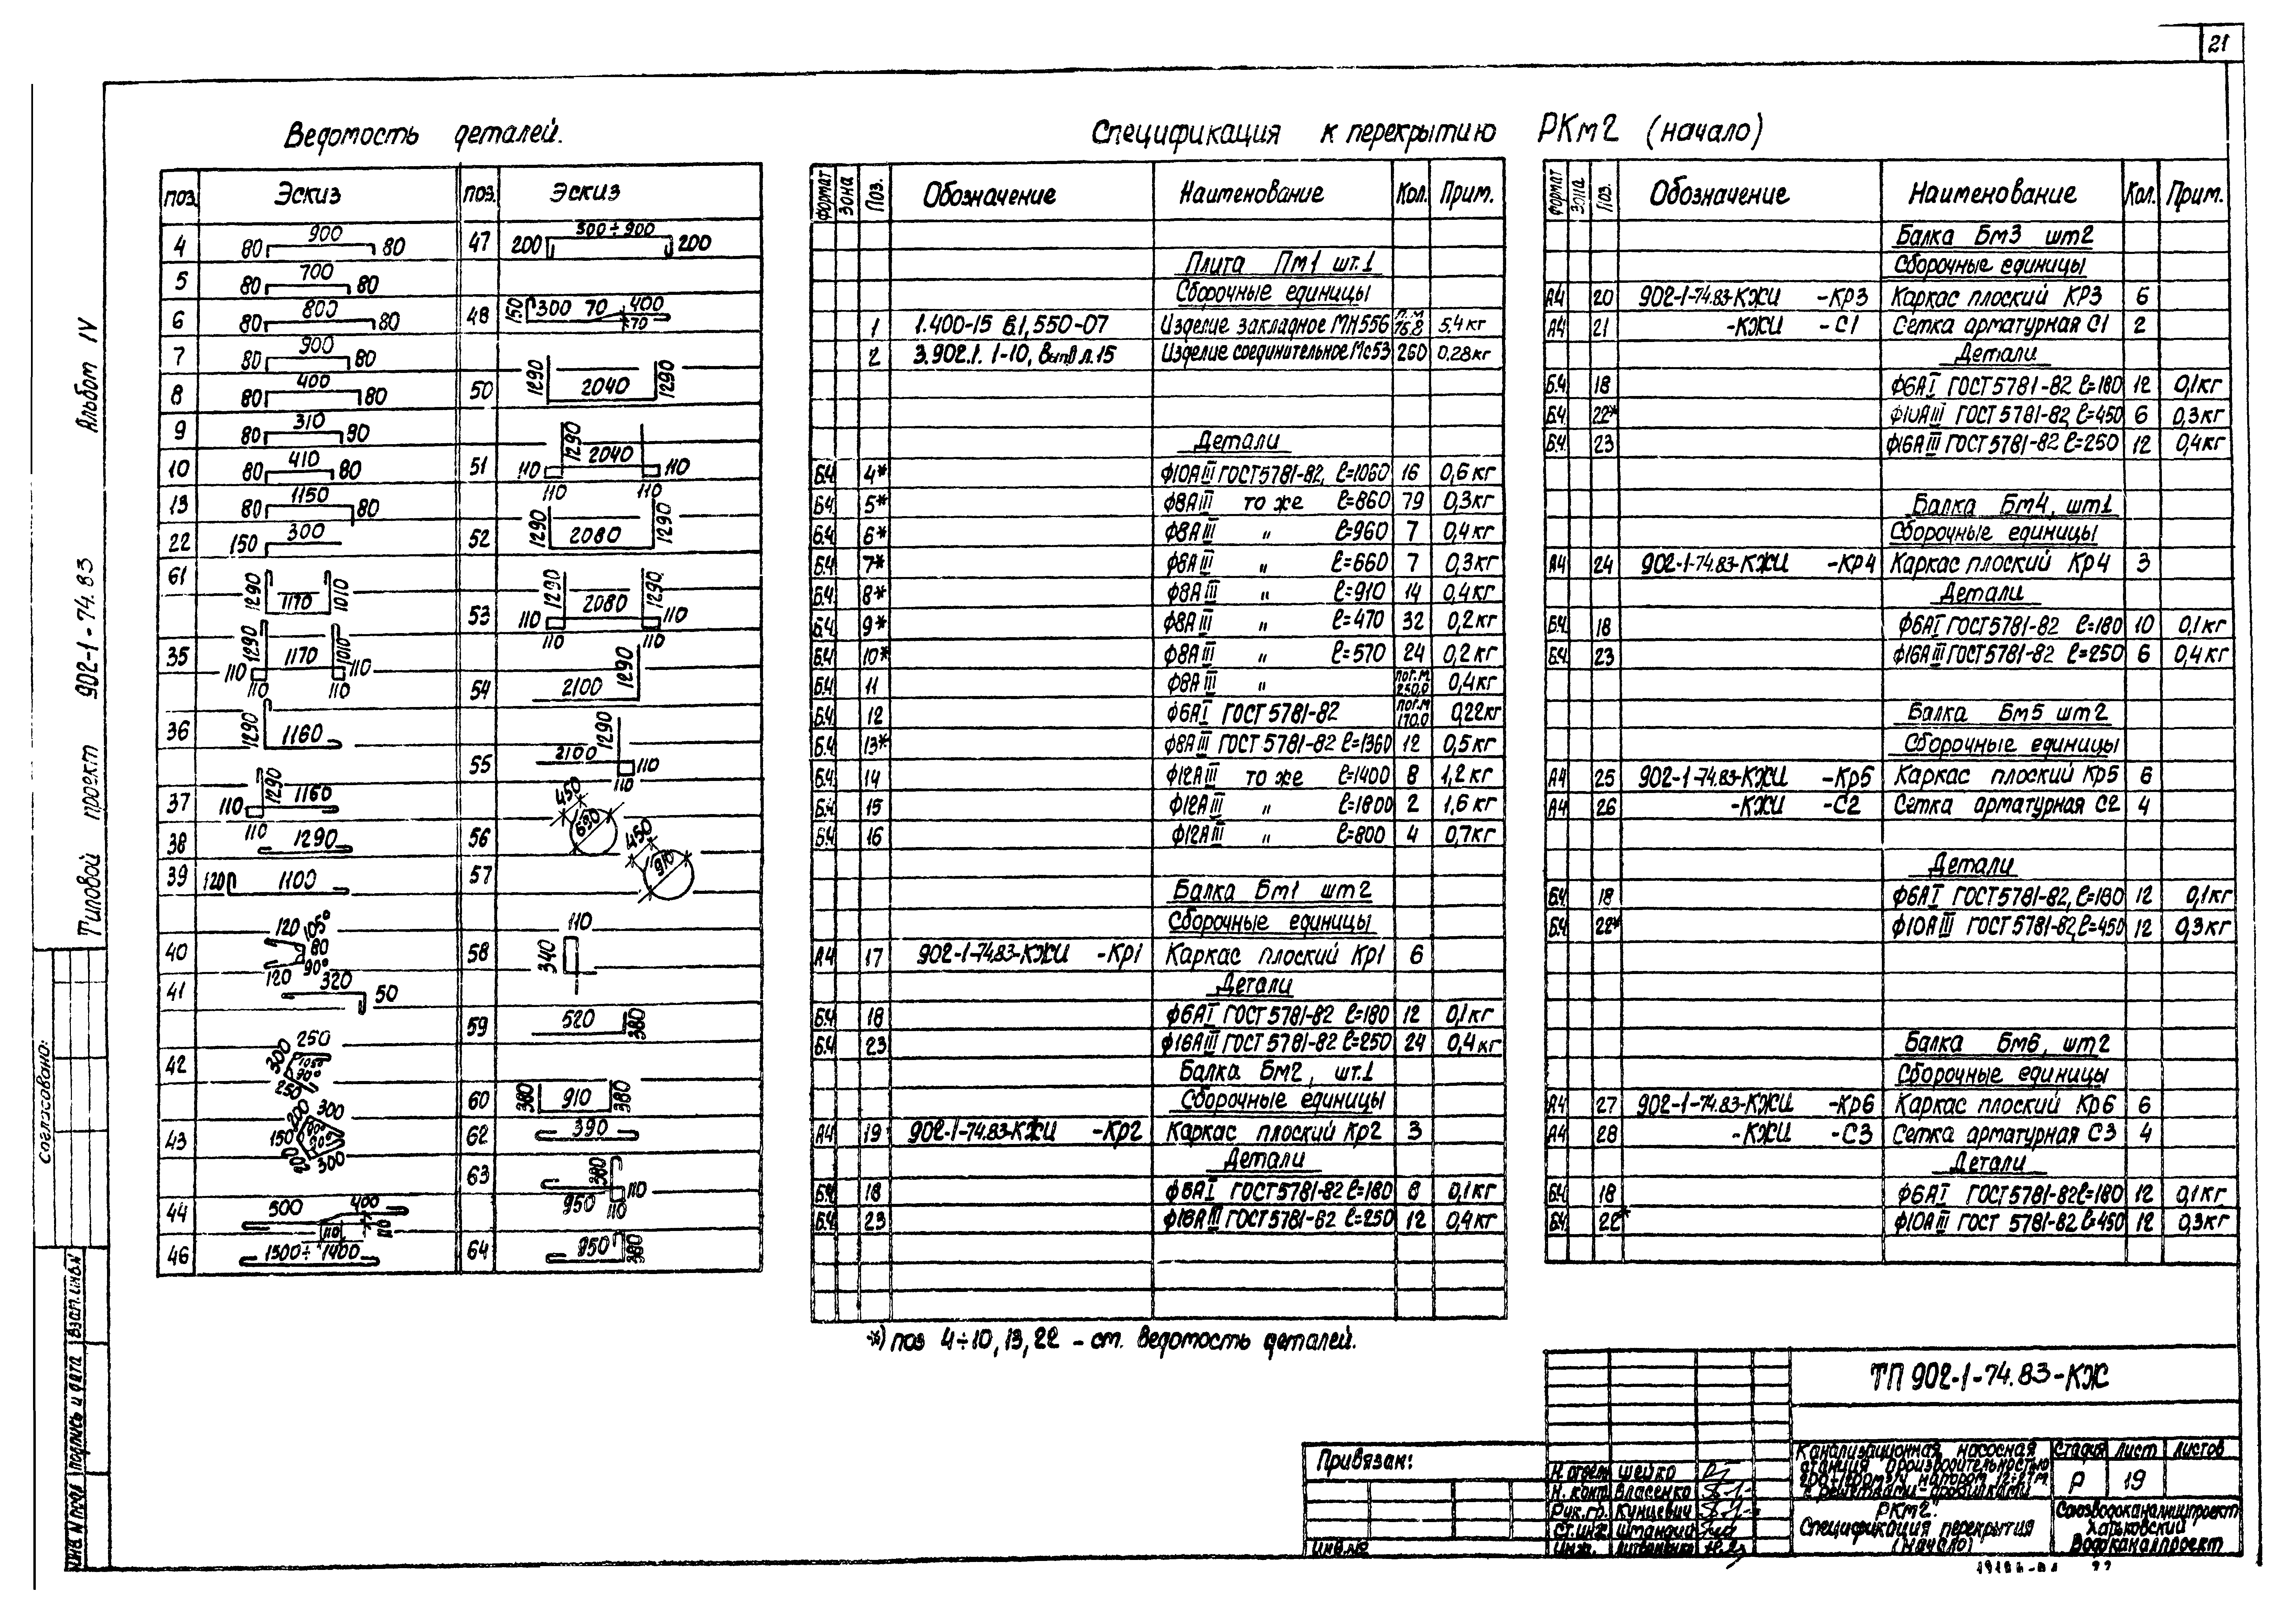 21
Альбом IV
Типовой проект 902-1-74.83
Согласовано:
Взам. инв. №
Подпись и дата
Инв. № подл.
Ведомость деталей.
Поз. Эскиз Поз. Эскиз
4 80 900 80
5 80 700 80
6 80 800 80
7 80 900 80
8 80 400 80
9 80 310 80
10 80 410 80
13 80 1150 80
22 150 300
61 1290 1170 1010
35 1290 1170 1010 110 110 110 110
36 1290 1160
37 1290 1160 110 110
38 1290
39 120 1100
40 120 105° 80 90° 120
41 320 50
42 250 300 105° 90° 250
43 200 300 150 90° 200 300
44 500 400 110 110
46 1500÷1400
47 200 500÷900 200
48 150 300 70 400 70
50 1290 2040 1290
51 1290 2040 110 110 110 110
52 1290 2080 1290
53 1290 2080 1290 110 110 110 110
54 2100 1290
55 2100 1290 110 110
56 450 690
57 450 910
58 110 340
59 520 380
60 380 910 380
62 390
63 380 950 110 110
64 950 380
Спецификация к перекрытию РКм2 (начало)
Формат Зона Поз. Обозначение Наименование Кол. Прим.
Плита Пм1 шт.1
Сборочные единицы
1 1.400-15 В.1, 550-07 Изделие закладное МН556 п.м 75.8 5.4кг
2 3.902.1. 1-10, Вып0 л.15 Изделие соединительное Мс53 260 0,28кг
Детали
Б.Ч. 4* ф10АIII ГОСТ5781-82, ℓ=1060 16 0,6кг
Б.Ч. 5* ф8АIII то же ℓ=860 79 0,3кг
Б.Ч. 6* ф8АIII " ℓ=960 7 0,4кг
Б.Ч. 7* ф8АIII " ℓ=660 7 0,3кг
Б.Ч. 8* ф8АIII " ℓ=910 14 0,4кг
Б.Ч. 9* ф8АIII " ℓ=470 32 0,2кг
Б.Ч. 10* ф8АIII " ℓ=570 24 0,2кг
Б.Ч. 11 ф8АIII " пог.м 250,0 0,4кг
Б.Ч. 12 ф6АI ГОСТ 5781-82 пог.м 170,0 0,22кг
Б.Ч. 13* ф8АIII ГОСТ 5781-82 ℓ=1360 12 0,5кг
Б.Ч. 14 ф12АIII то же ℓ=1400 8 1,2кг
Б.Ч. 15 ф12АIII " ℓ=1800 2 1,6кг
Б.Ч. 16 ф12АIII " ℓ=800 4 0,7кг
Балка Бм1 шт2
Сборочные единицы
А4 17 902-1-74.83-КЖИ -Кр1 Каркас плоский Кр1 6
Детали
Б.Ч. 18 ф6АI ГОСТ 5781-82 ℓ=180 12 0,1кг
Б.Ч. 23 ф16АIII ГОСТ 5781-82 ℓ=250 24 0,4кг
Балка Бм2, шт.1
Сборочные единицы
А4 19 902-1-74.83-КЖИ -Кр2 Каркас плоский Кр2 3
Детали
Б.Ч. 18 ф6АI ГОСТ5781-82 ℓ=180 8 0,1кг
Б.Ч. 23 ф16АIII ГОСТ5781-82 ℓ=250 12 0,4кг
*) поз 4÷10, 13, 22 - ст. ведомость деталей.
Формат Зона Поз. Обозначение Наименование Кол. Прим.
Балка Бм3 шт2
Сборочные единицы
А4 20 902-1-74.83-КЖИ -КР3 Каркас плоский КР3 6
А4 21 -КЖИ -С1 Сетка арматурная С1 2
Детали
Б.Ч. 18 ф6АI ГОСТ5781-82 ℓ=180 12 0,1кг
Б.Ч. 22* ф10АIII ГОСТ5781-82, ℓ=450 6 0,3кг
Б.Ч. 23 ф16АIII ГОСТ5781-82 ℓ=250 12 0,4кг
Балка Бм4, шт1
Сборочные единицы
А4 24 902-1-74.83-КЖИ -Кр4 Каркас плоский Кр4 3
Детали
Б.Ч. 18 ф6АI ГОСТ5781-82 ℓ=180 10 0,1кг
Б.Ч. 23 ф16АIII ГОСТ5781-82 ℓ=250 6 0,4кг
Балка Бм5 шт2
Сборочные единицы
А4 25 902-1-74.83-КЖИ -Кр5 Каркас плоский Кр5 6
А4 26 -КЖИ -С2 Сетка арматурная С2 4
Детали
Б.Ч. 18 ф6АI ГОСТ5781-82, ℓ=180 12 0,1кг
Б.Ч. 22* ф10АIII ГОСТ5781-82, ℓ=450 12 0,3кг
Балка Бм6, шт2
Сборочные единицы
А4 27 902-1-74.83-КЖИ -Кр6 Каркас плоский Кр6 6
А4 28 -КЖИ -С3 Сетка арматурная С3 4
Детали
Б.Ч. 18 ф6АI ГОСТ5781-82 ℓ=180 12 0,1кг
Б.Ч. 22* ф10АIII ГОСТ 5781-82 ℓ=450 12 0,3кг
ТП 902-1-74.83-КЖ
Привязан:
Инв.№
Н. отдел Шейко
Н. конт. Власенко
Рук. гр. Кунцевич
Ст. инж. Штандиа
Инж. Литвиненко
Канализационная насосная
станция производительностью
напором 12÷27м
с решетками-дробилками
РКм2.
Спецификация перекрытия
(начало)
Стадия Лист Листов
Р 19
Союзводоканалниипроект
Харьковский
Водоканалпроект